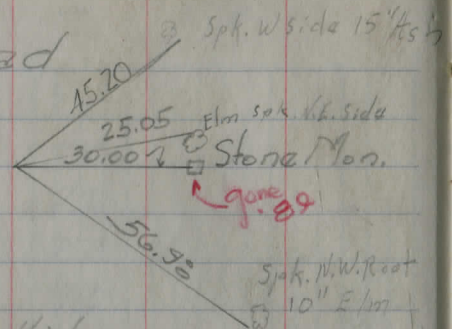 Spk. W side 15" Ash
ad
45.20
25.05 Elm Spk. N.E. side
30.00 Stone Mon.
gone
56.90
Spk. N.W. Root
10" Elm